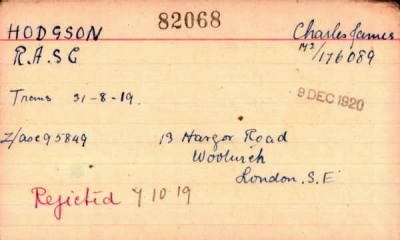 82068
HODGSON Charles James
R.A.S.C M2/176089
Trans 31-8-19.
9 DEC 1920
Z/aoc95849 13 Hargor Road
Woolwich
London. S.E
Rejected 7 10 19